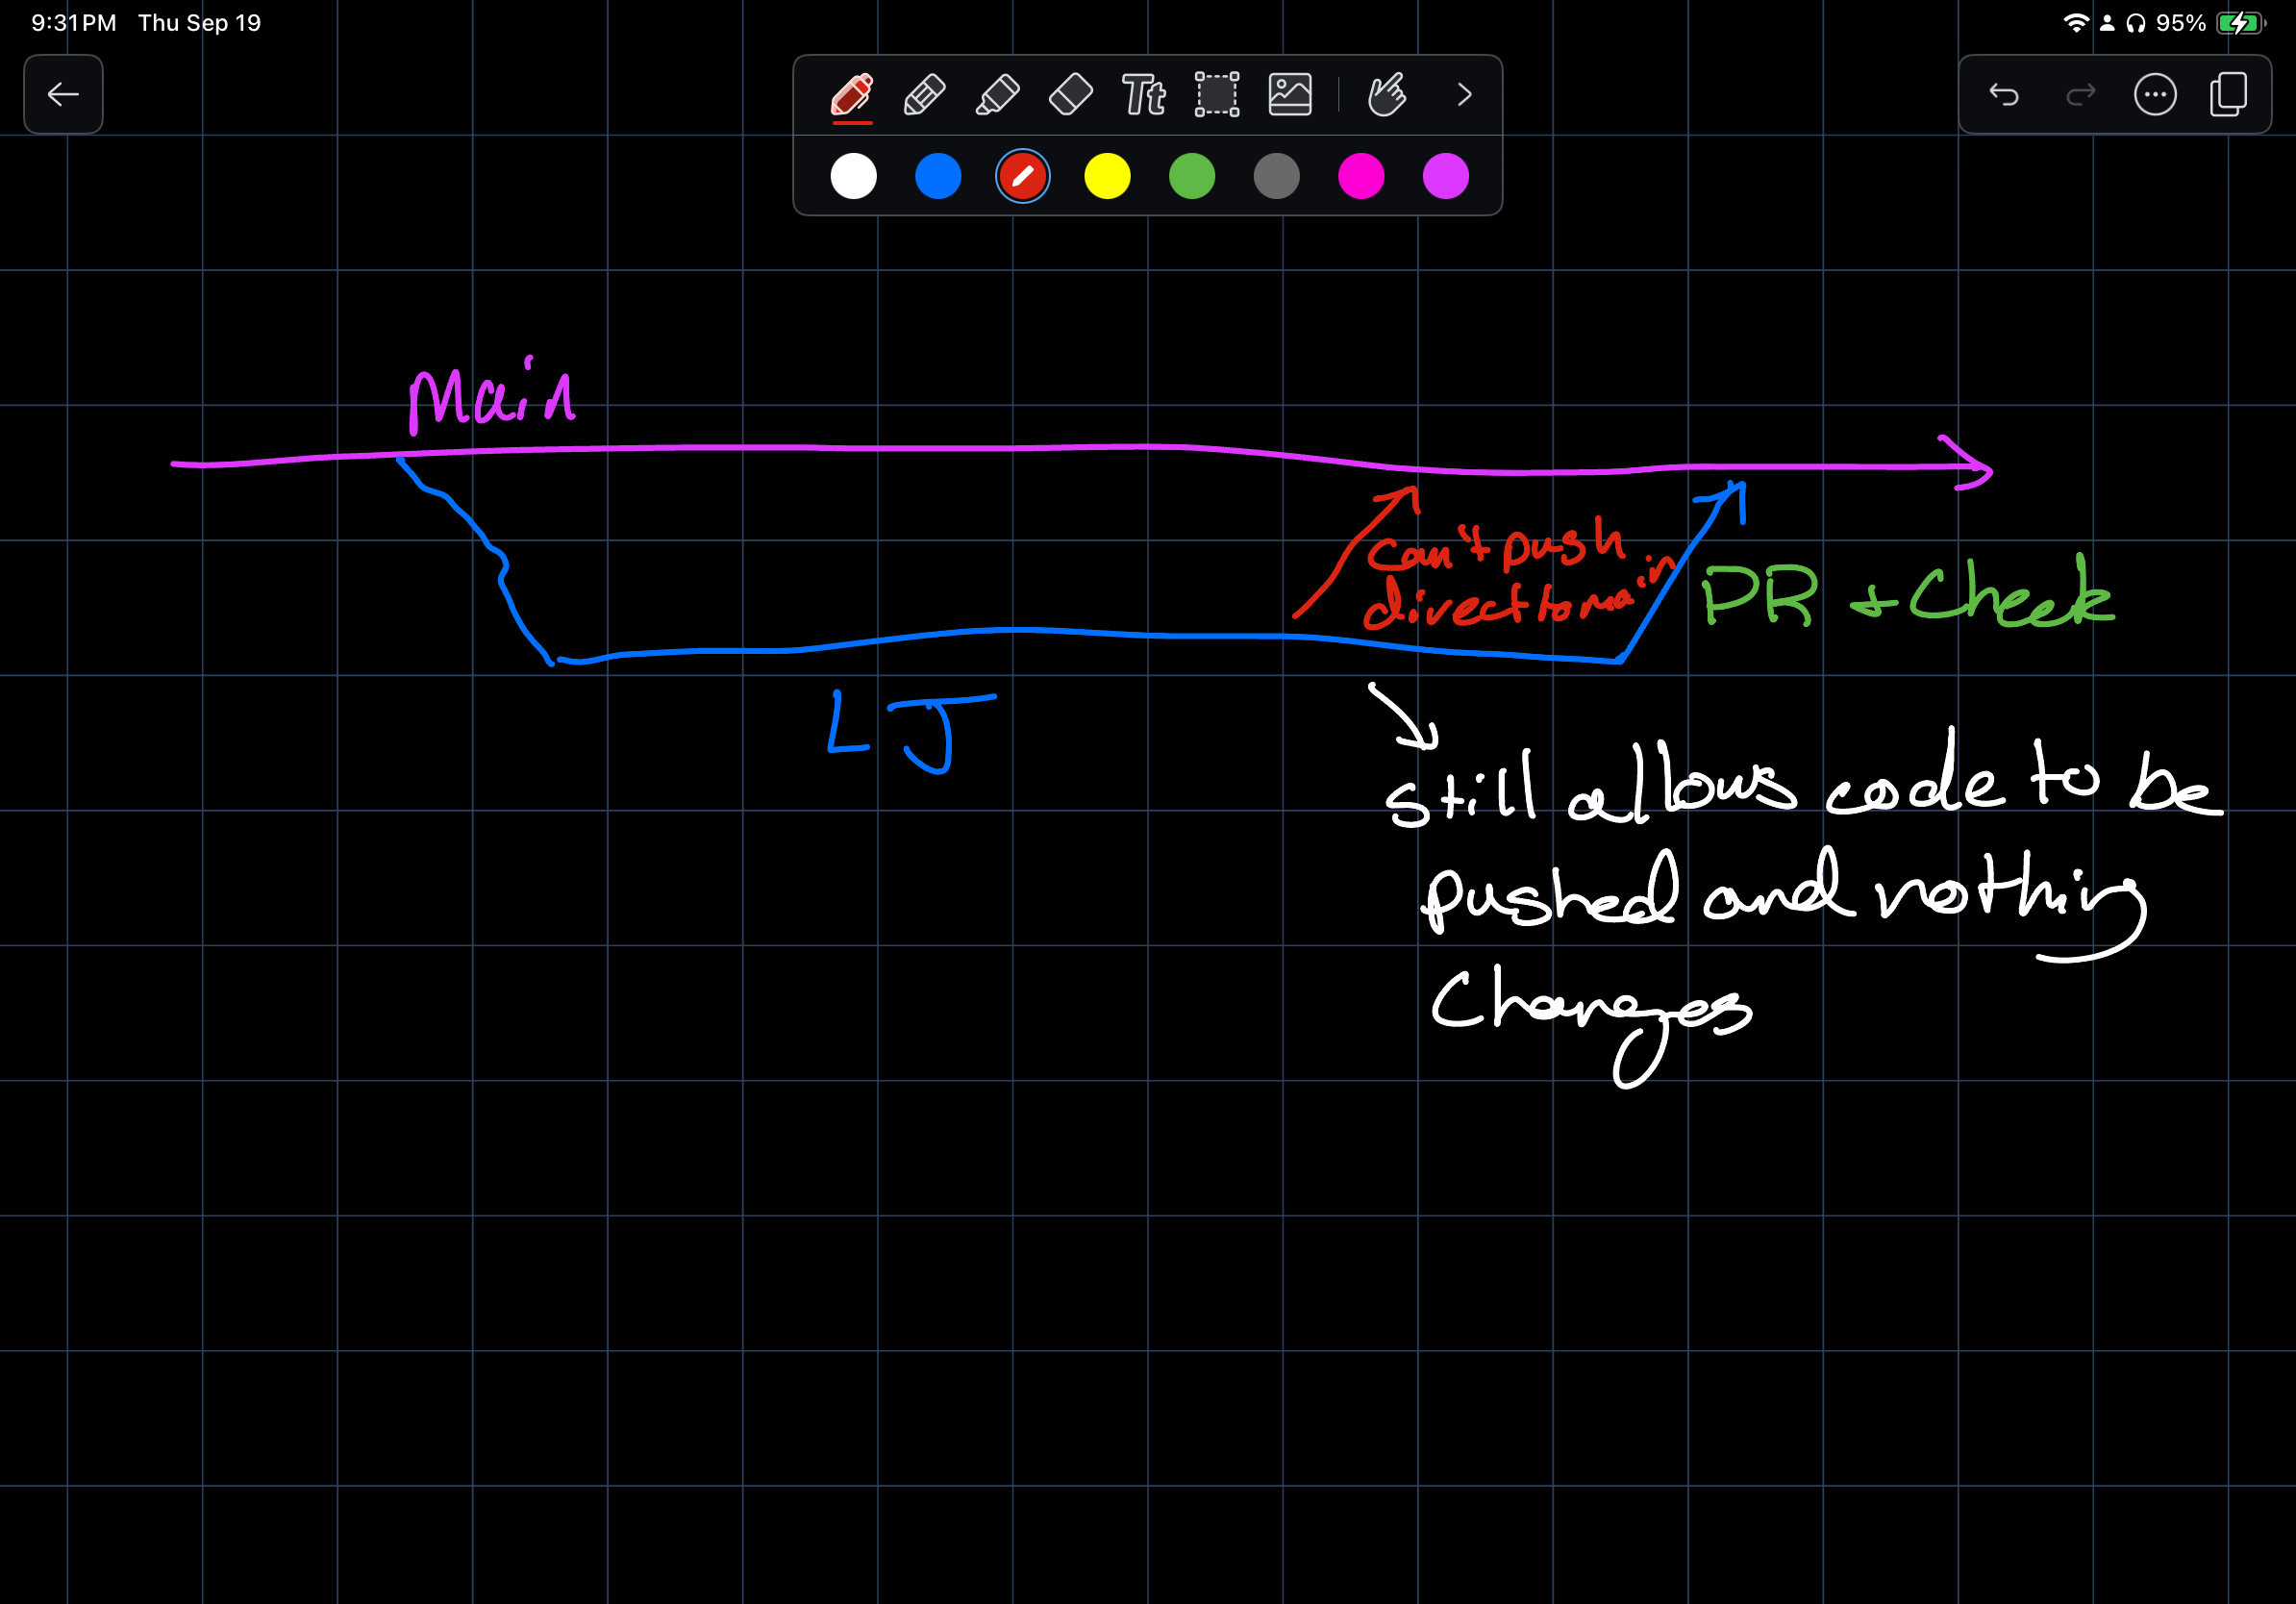 9:31 PM Thu Sep 19
95%
Tt
Main
can't push
direct to main
PR + Check
LJ
still allows code to be
pushed and nothing
Changes